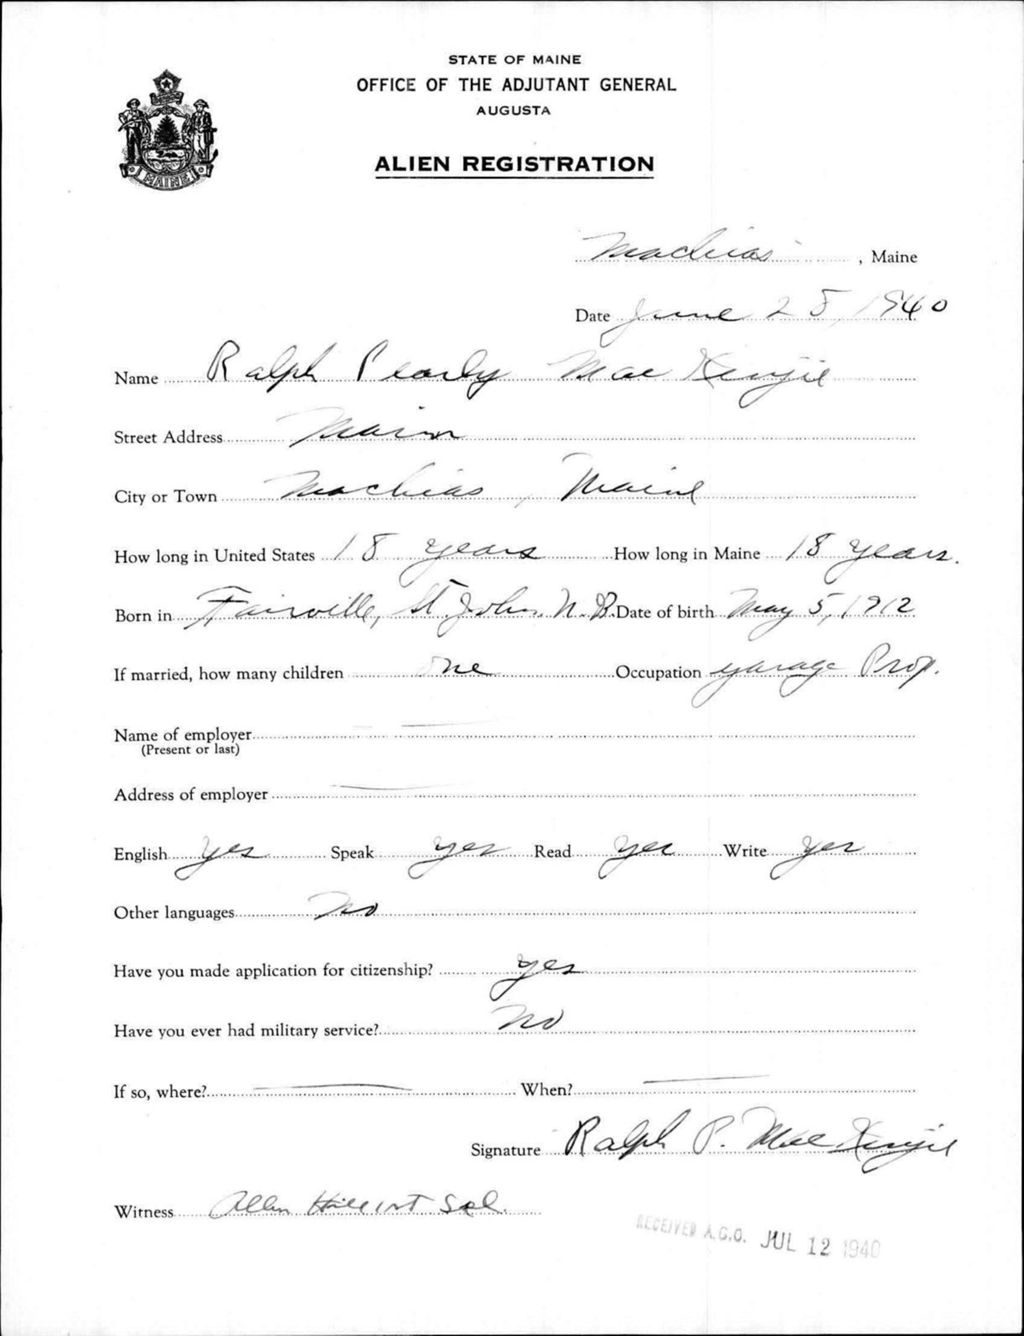 STATE OF MAINE
OFFICE OF THE ADJUTANT GENERAL
AUGUSTA
ALIEN REGISTRATION
MAINE
Machias, Maine
Date June 25, 1940
Name Ralph Pearly MacKenzie
Street Address Main
City or Town Machias, Maine
How long in United States 18 years How long in Maine 18 years.
Born in Fairville, St John, N.B. Date of birth May 5, 1912
If married, how many children one Occupation garage Prop.
Name of employer
(Present or last)
Address of employer
English yes Speak yes Read yes Write yes
Other languages No
Have you made application for citizenship? yes
Have you ever had military service? No
If so, where? When?
Signature Ralph P. MacKenzie
Witness Allen
RECEIVED A.G.O. JUL 12 1940